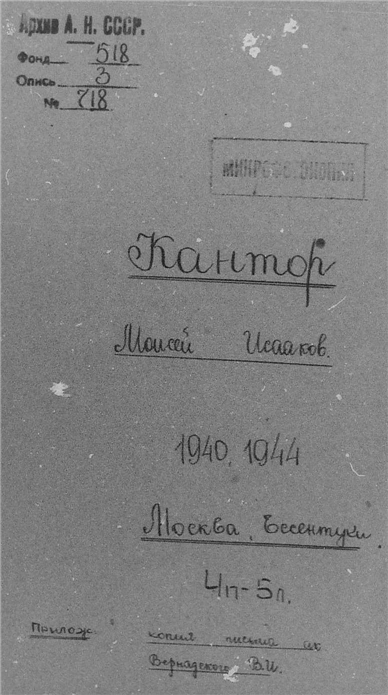 Архив А. Н. СССР.
Фонд 518
Опись 3
№ 718
МИКРОФОТОКОПИЯ
Кантор
Моисей Исааков.
1940, 1944
Москва, Ессентуки.
4п-5л.
Прилож. копия письма ак
Вернадского В.И.